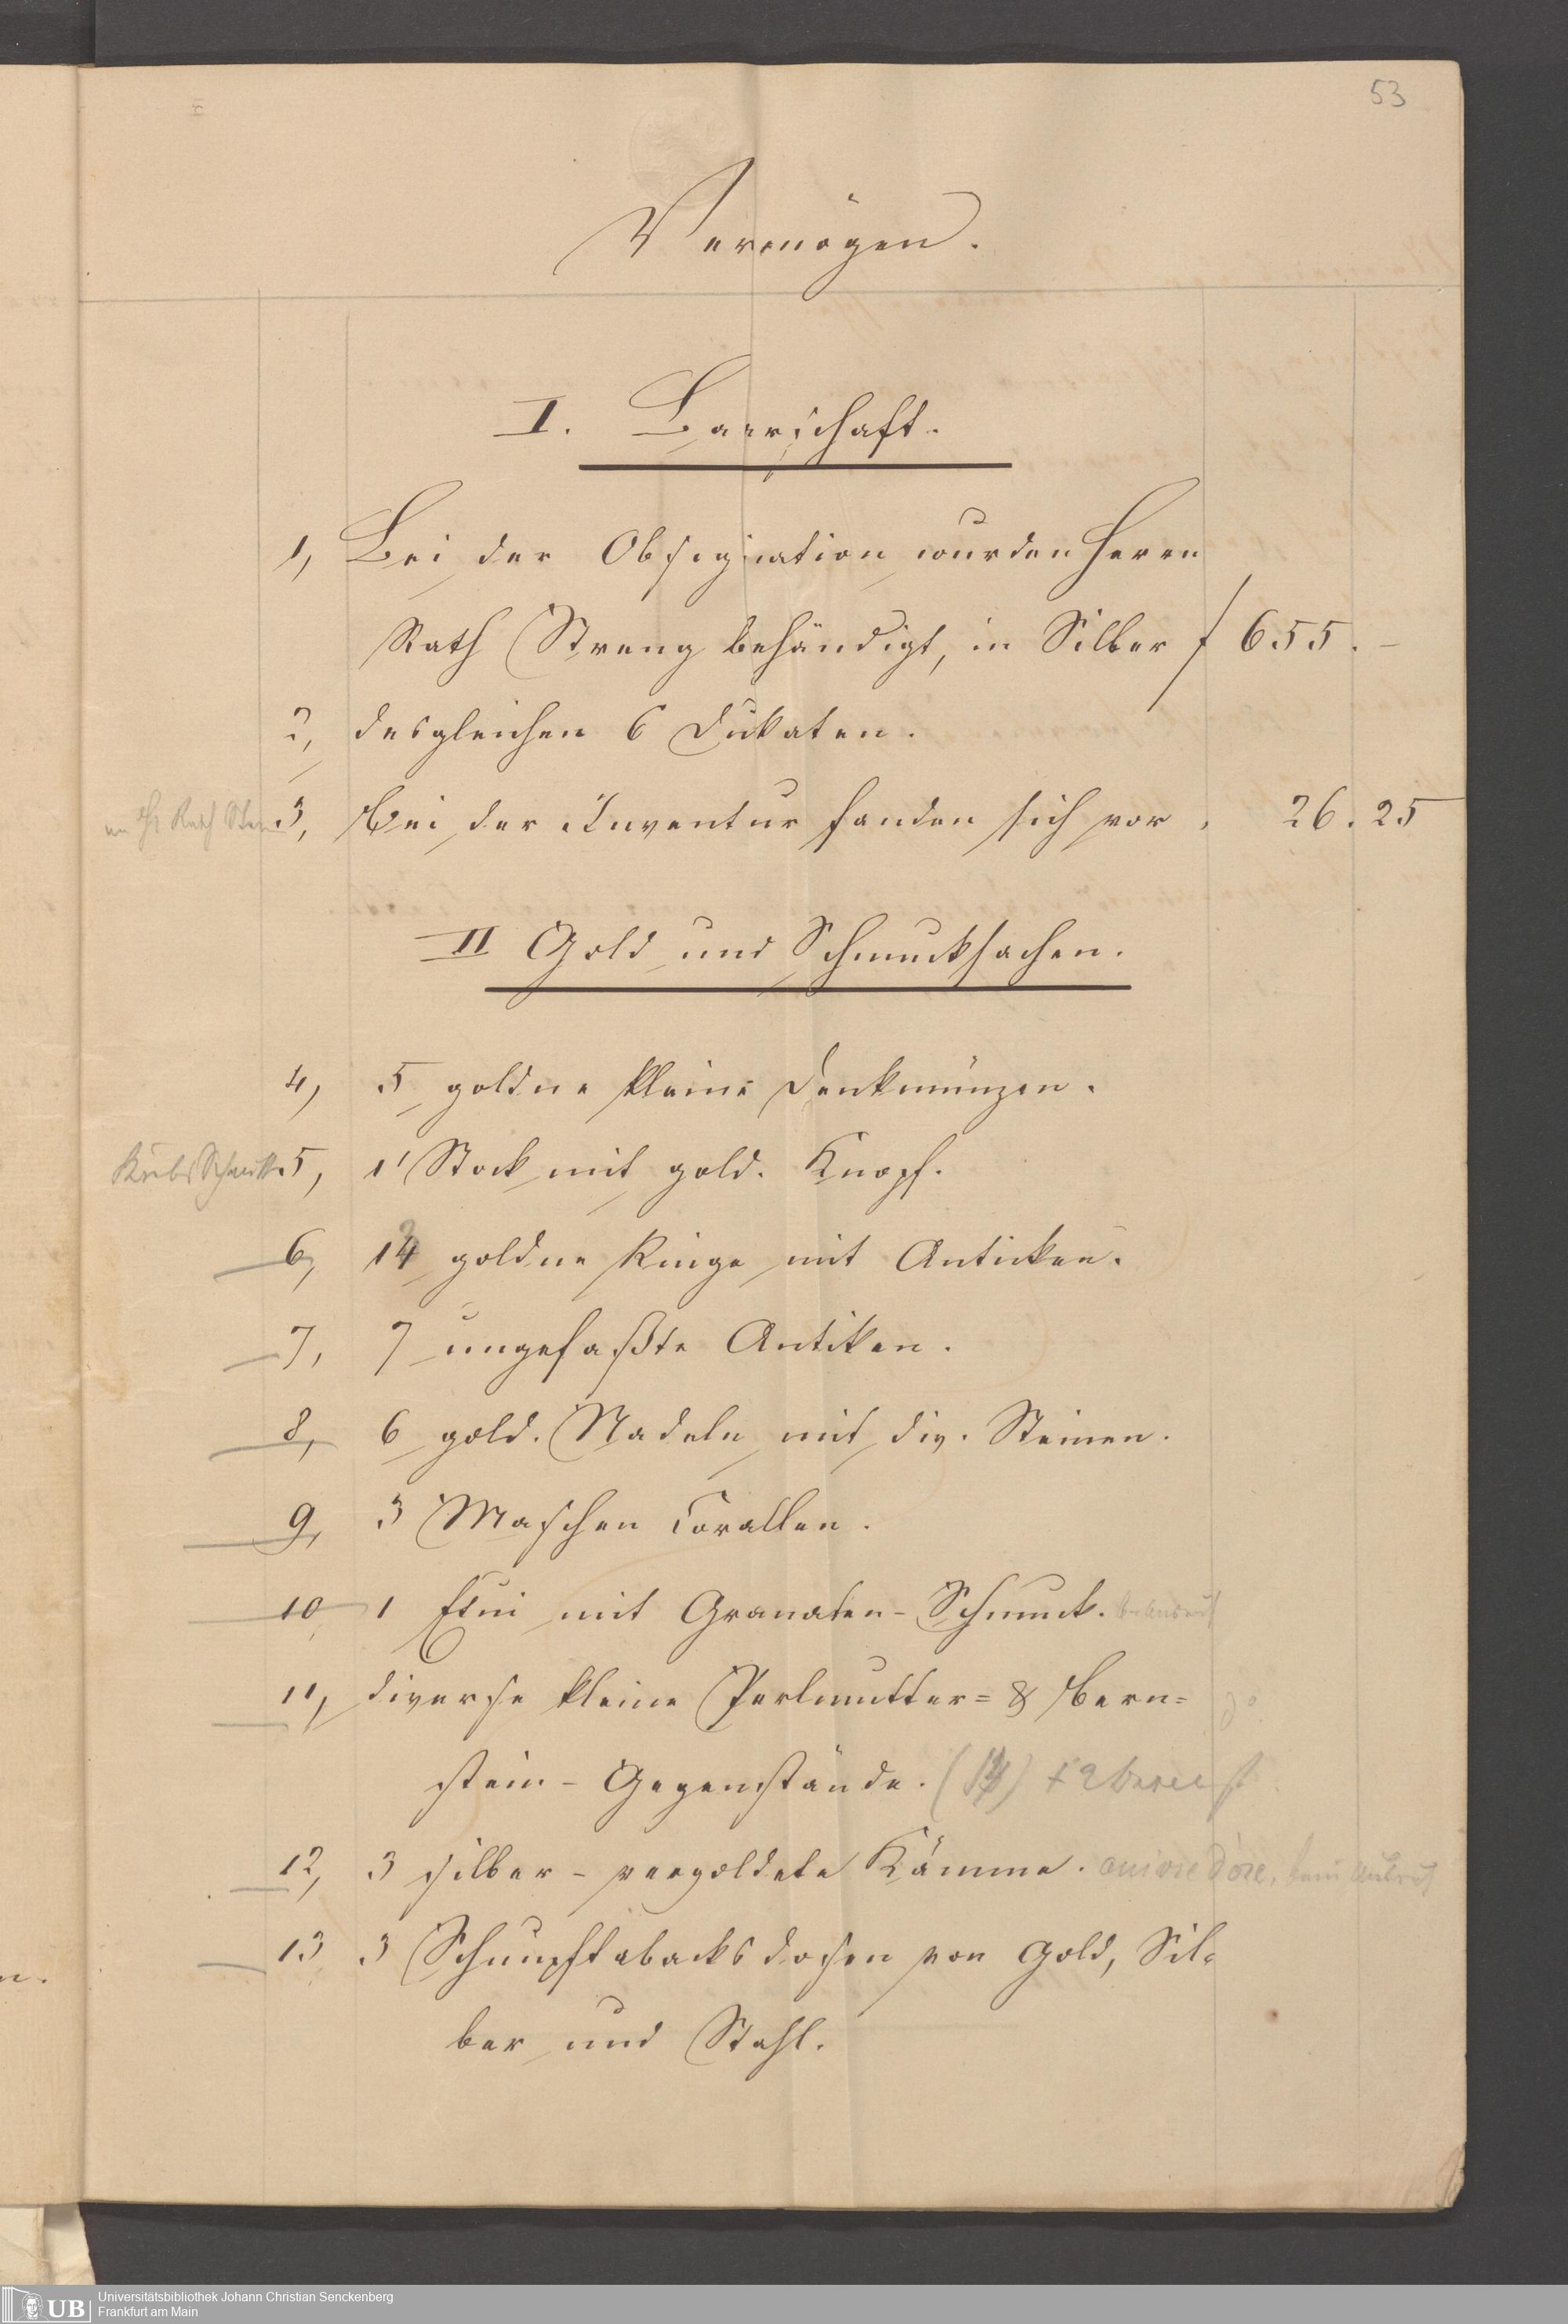 53
Vermögen.
I. Baarschaft.
1, Bei der Obsignation wurden Herrn
Rath Streng behändigt, in Silber f 655. –
2, desgleichen 6 Dukaten.
3, Bei der Inventur fanden sich vor , 26. 25
II Gold und Schmucksachen.
4, 5 goldne kleine Denkmünzen.
5, 1 Stock mit gold. Knopf.
6, 14 goldne Ringe mit Anticken.
7, 7 ungefaßte Antiken.
8, 6 gold. Nadeln mit div. Steinen.
9, 3 Maschen Corallen.
10 1 Etui mit Granaten-Schmuck.
11, diverse kleine Perlmutter= & Bern= do
stein-Gegenstände.
12, 3 silber-vergoldete Kämme.
13 3 Schnupftabacksdosen von Gold, Sil=
ber und Stahl.
UB Universitätsbibliothek Johann Christian Senckenberg
Frankfurt am Main